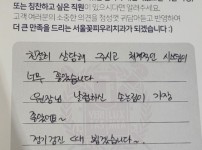 또는 칭찬하고 싶은 직원이 있으시다면 알려주세요.
고객 여러분의 소중한 의견을 정성껏 귀담아듣고 반영하여
더 큰 만족을 드리는 서울꽃피우리치과가 되겠습니다 :)
친절히 상담해 주시고 최적적인
너무 좋았습니다
원장님 날렵하신 손놀림이 가장
좋았어요~
정기검진 때 뵙겠습니다~